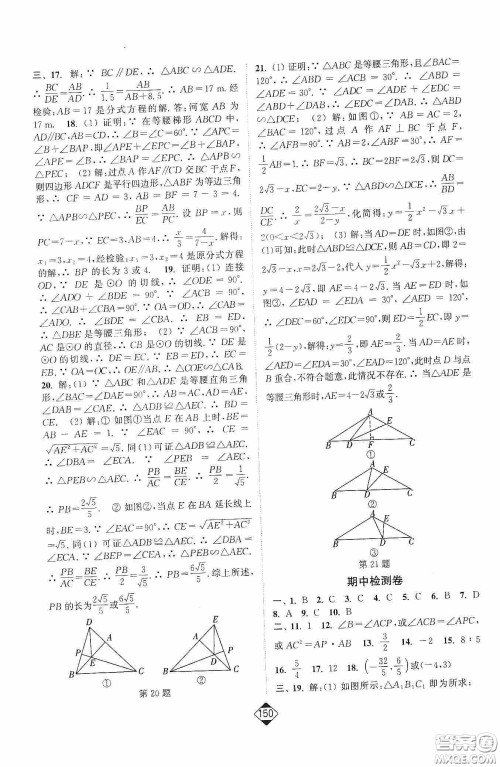 三、17. 解：∵ BC∥DE，∴ △ABC∽△ADE. ∴
BC/DE = AB/AD. ∴ 1/1.5 = AB/(AB+8.5). ∴ AB=17 m. 经
检验：AB=17 是分式方程的解. 答：河宽 AB为
17 m. 18. (1) 证明：∵ 在等腰梯形 ABCD 中，
AD∥BC，AB=CD，∴ ∠B=∠C=60°. ∵ ∠APC=
∠B+∠BAP，即∠APE+∠EPC=∠B+∠BAP，
∠APE=∠B，∴ ∠BAP=∠EPC. ∴ △APB∽
△PEC； (2) 解：过点 A 作 AF∥CD 交 BC 于点 F，
则四边形 ADCF 是平行四边形，△ABF 为等边三角
形. ∴ CF=AD=3，AB=BF=7-3=4.
∵ △APB∽△PEC，∴ BP/EC = AB/PC. 设 BP=x，则
PC=7-x，∵ EC=3，AB=4，∴ x/3 = 4/(7-x). 解得：
x₁=3，x₂=4，经检验：x₁=3，x₂=4 是原分式方程的
解. ∴ BP 的长为 3 或 4. 19. 证明：(1) 连接
OD，∵ DE 是⊙O 的切线，∴ ∠ODE=90°.
∴ ∠ADO+∠BDE=90°. ∵ ∠ACB=90°，
∴ ∠CAB+∠CBA=90°. ∵ OA=OD，∴ ∠OAD=
∠ADO. ∴ ∠BDE=∠CBA. ∴ EB=ED.
∴ △DBE 是等腰三角形； (2) ∵ ∠ACB=90°，
AC 是⊙O 的直径，∴ CB 是⊙O 的切线. ∵ DE 是
⊙O 的切线，∴ DE=EC. ∵ EB=ED，∴ EC=
EB. ∵ OA=OC，∴ OE∥AB. ∴ △COE∽△CAB.
20. 解：(1) ∵ △ABC 和△ADE 是等腰直角三角
形，∠BAC=∠DAE=90°，∴ AB=AC，AD=AE，
∠DAB=∠CAE. ∴ △ADB≌△AEC. ∴ BD=
CE. (2) 解：① 如图①当点 E 在 AB 上时，BE=
AB-AE=1. ∵ ∠EAC=90°，∴ CE=
√(AE²+AC²)=√5. 同(1)可证△ADB≌△AEC.
∴ ∠DBA=∠ECA. ∵ ∠PEB=∠AEC，
∴ △PEB∽△AEC. ∴ PB/AC = BE/CE. ∴ PB/2 = 1/√5.
∴ PB=2√5/5. ② 如图②，当点 E 在 BA 延长线上
时，BE=3. ∵ ∠EAC=90°，∴ CE=√(AE²+AC²)
=√5. 同(1)可证△ADB≌△AEC. ∴ ∠DBA=
∠ECA. ∵ ∠BEP=∠CEA，∴ △PEB∽△AEC.
∴ PB/AC = BE/CE. ∴ PB/2 = 3/√5. ∴ PB=6√5/5. 综上所述，
PB 的长为 2√5/5 或 6√5/5.
①
②
第 20 题
21. (1) 证明：∵ △ABC 是等腰三角形，且∠BAC=
120°，∴ ∠ABD=∠ACB=30°. ∴ ∠ABD=
∠ADE=30°. ∵ ∠ADC=∠ADE+∠EDC=
∠ABD+∠DAB，∴ ∠EDC=∠DAB. ∴ △ABD
∽△DCE； (2) 解：如图①，∵ AB=AC=2，
∠BAC=120°，过点 A 作 AF⊥BC 于点 F，
∴ ∠AFB=90°. ∵ AB=2，∠ABF=30°，∴ AF=
1/2 AB=1. ∴ BF=√3. ∴ BC=2BF=2√3，则 DC=
2√3-x，EC=2-y. ∵ △ABD∽△DCE，∴ AB/BD =
DC/CE. ∴ 2/x = (2√3-x)/(2-y). 化简得：y=1/2x²-√3x+
2(0<x<2√3)； (3) 解：当 AD=DE 时，如图②，由
(1)可知：此时△ABD≌△DCE，则 AB=CD，即 2=
2√3-x，x=2√3-2，代入 y=1/2x²-√3x+2，解得：
y=4-2√3，即 AE=4-2√3，当 AE=ED 时，如
图③，∠EAD=∠EDA=30°，∠AED=120°，
∴ ∠DEC=60°，∠EDC=90°，则 ED=1/2EC，即 y
=1/2(2-y)，解得：y=2/3，即 AE=2/3，当 AD=AE
时，∠AED=∠EDA=30°，∠EAD=120°，此时点 D 与点
B 重合，不符合题意，此情况不存在. ∴ 当△ADE 是
等腰三角形时，AE=4-2√3 或 2/3.
①
②
③
第 21 题
期中检测卷
一、1. B 2. D 3. C 4. B 5. C 6. B 7. D
8. A 9. C 10. B
二、11. 1 12. ∠B=∠ACP，或∠ACB=∠APC，
或 AC²=AP·AB 13. √13 14. -2 15. 8：5
16. 5/4 17. 13/12 18. (-32/5，6/5)或(-4，3)
三、19. 解：(1) 如图所示：△A₁B₁C₁ 即为所求；
150
答案圈
MXQE.COM